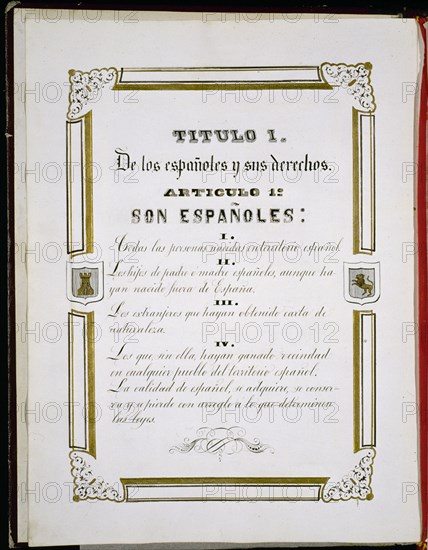 TITULO I.
De los españoles y sus derechos.
ARTICULO 1º
SON ESPAÑOLES:
I.
Todas las personas nacidas en territorio español.
II.
Los hijos de padre o madre españoles, aunque ha
yan nacido fuera de España.
III.
Los extranjeros que hayan obtenido carta de
naturaleza.
IV.
Los que, sin ella, hayan ganado vecindad
en cualquier pueblo del territorio español.
La calidad de español, se adquiere, se conser-
va y se pierde con arreglo a lo que determinan
las leyes.
PHOTO12